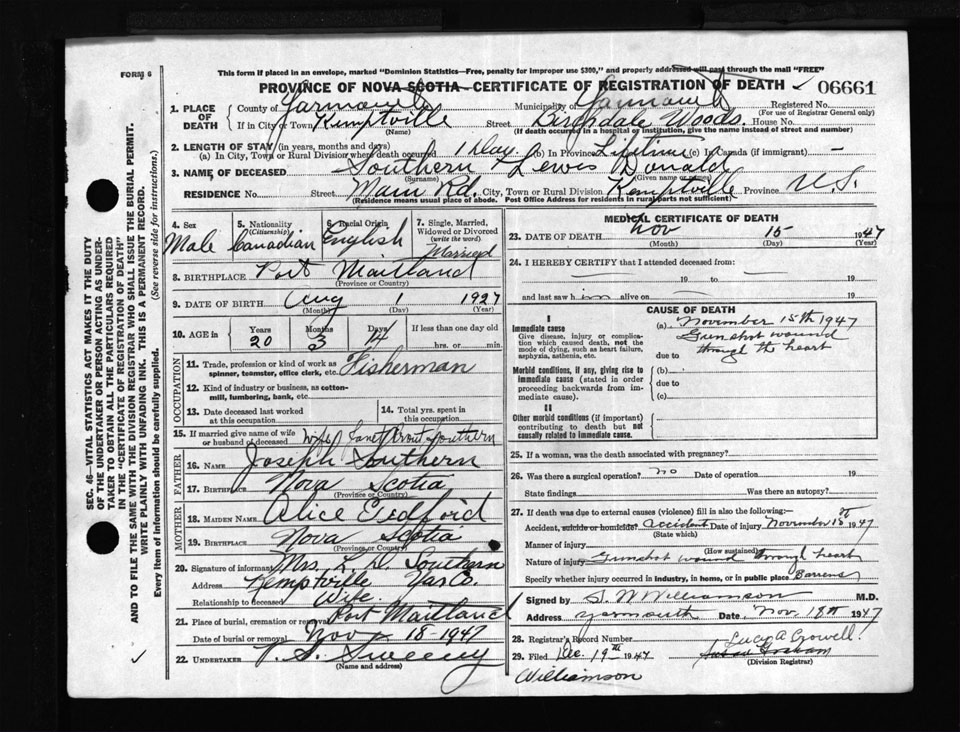 FORM 6
This form if placed in an envelope, marked "Dominion Statistics—Free, penalty for improper use $300," and properly addressed will pass through the mail "FREE"
PROVINCE OF NOVA SCOTIA—CERTIFICATE OF REGISTRATION OF DEATH 06661
1. PLACE OF DEATH County of Yarmouth Municipality of Yarmouth Registered No.
(For use of Registrar General only)
If in City or Town Kemptville Street Birchdale Woods. House No.
(Name) (If death occurred in a hospital or institution, give the name instead of street and number)
2. LENGTH OF STAY (in years, months and days)
(a) In City, Town or Rural Division where death occurred 1 Day. (b) In Province Lifetime (c) In Canada (if immigrant) —
3. NAME OF DECEASED Southern Lewis Donald
(Surname) (Given name or names)
RESIDENCE No. Street Main Rd. City, Town or Rural Division Kemptville Province N.S.
(Residence means usual place of abode. Post Office Address for residents in rural parts not sufficient)
4. Sex Male
5. Nationality (Citizenship) Canadian
6. Racial Origin English
7. Single, Married, Widowed or Divorced (write the word) Married
8. BIRTHPLACE Port Maitland
(Province or Country)
9. DATE OF BIRTH Aug 1 1927
(Month) (Day) (Year)
10. AGE in Years 20 Months 3 Days 14 If less than one day old
hrs. or min.
OCCUPATION
11. Trade, profession or kind of work as spinner, teamster, office clerk, etc. Fisherman
12. Kind of industry or business, as cotton-mill, lumbering, bank, etc.
13. Date deceased last worked at this occupation
14. Total yrs. spent in this occupation
15. If married give name of wife or husband of deceased wife Janet Southern
FATHER
16. Name Joseph Southern
17. Birthplace Nova Scotia
(Province or Country)
MOTHER
18. MAIDEN NAME Alice Tedford
19. BIRTHPLACE Nova Scotia
(Province or Country)
20. Signature of informant Mrs. L. D. Southern
Address Kemptville Yar Co.
Relationship to deceased Wife
21. Place of burial, cremation or removal Port Maitland
Date of burial or removal Nov 18-1947
22. UNDERTAKER V. S. Sweeny
(Name and address)
MEDICAL CERTIFICATE OF DEATH
23. DATE OF DEATH Nov 15 1947
(Month) (Day) (Year)
24. I HEREBY CERTIFY that I attended deceased from:
19 to 19
and last saw him alive on 19
CAUSE OF DEATH
I
Immediate cause
Give disease, injury or complication which caused death, not the mode of dying, such as heart failure, asphyxia, asthenia, etc.
(a) November 15th 1947
Gunshot wound
due to through the heart
Morbid conditions, if any, giving rise to immediate cause (stated in order proceeding backwards from immediate cause).
(b)
due to
(c)
II
Other morbid conditions (if important) contributing to death but not causally related to immediate cause.
25. If a woman, was the death associated with pregnancy?
26. Was there a surgical operation? no Date of operation 19
State findings Was there an autopsy?
27. If death was due to external causes (violence) fill in also the following:
Accident, suicide or homicide? accident Date of injury November 15th 1947
(State which)
Manner of injury
(How sustained)
Nature of injury Gunshot wound through heart
Specify whether injury occurred in industry, in home, or in public place Barrens
Signed by S. W. Williamson M.D.
Address Yarmouth Date Nov. 18th 1947
28. Registrar's Record Number
Lucy A Crowell
29. Filed Dec. 19th 1947
(Division Registrar)
Williamson
SEC. 46—VITAL STATISTICS ACT MAKES IT THE DUTY OF THE UNDERTAKER OR PERSON ACTING AS UNDERTAKER TO OBTAIN ALL THE PARTICULARS REQUIRED IN THE "CERTIFICATE OF REGISTRATION OF DEATH" AND TO FILE THE SAME WITH THE DIVISION REGISTRAR WHO SHALL ISSUE THE BURIAL PERMIT.
WRITE PLAINLY WITH UNFADING INK. THIS IS A PERMANENT RECORD.
Every item of information should be carefully supplied. (See reverse side for instructions.)